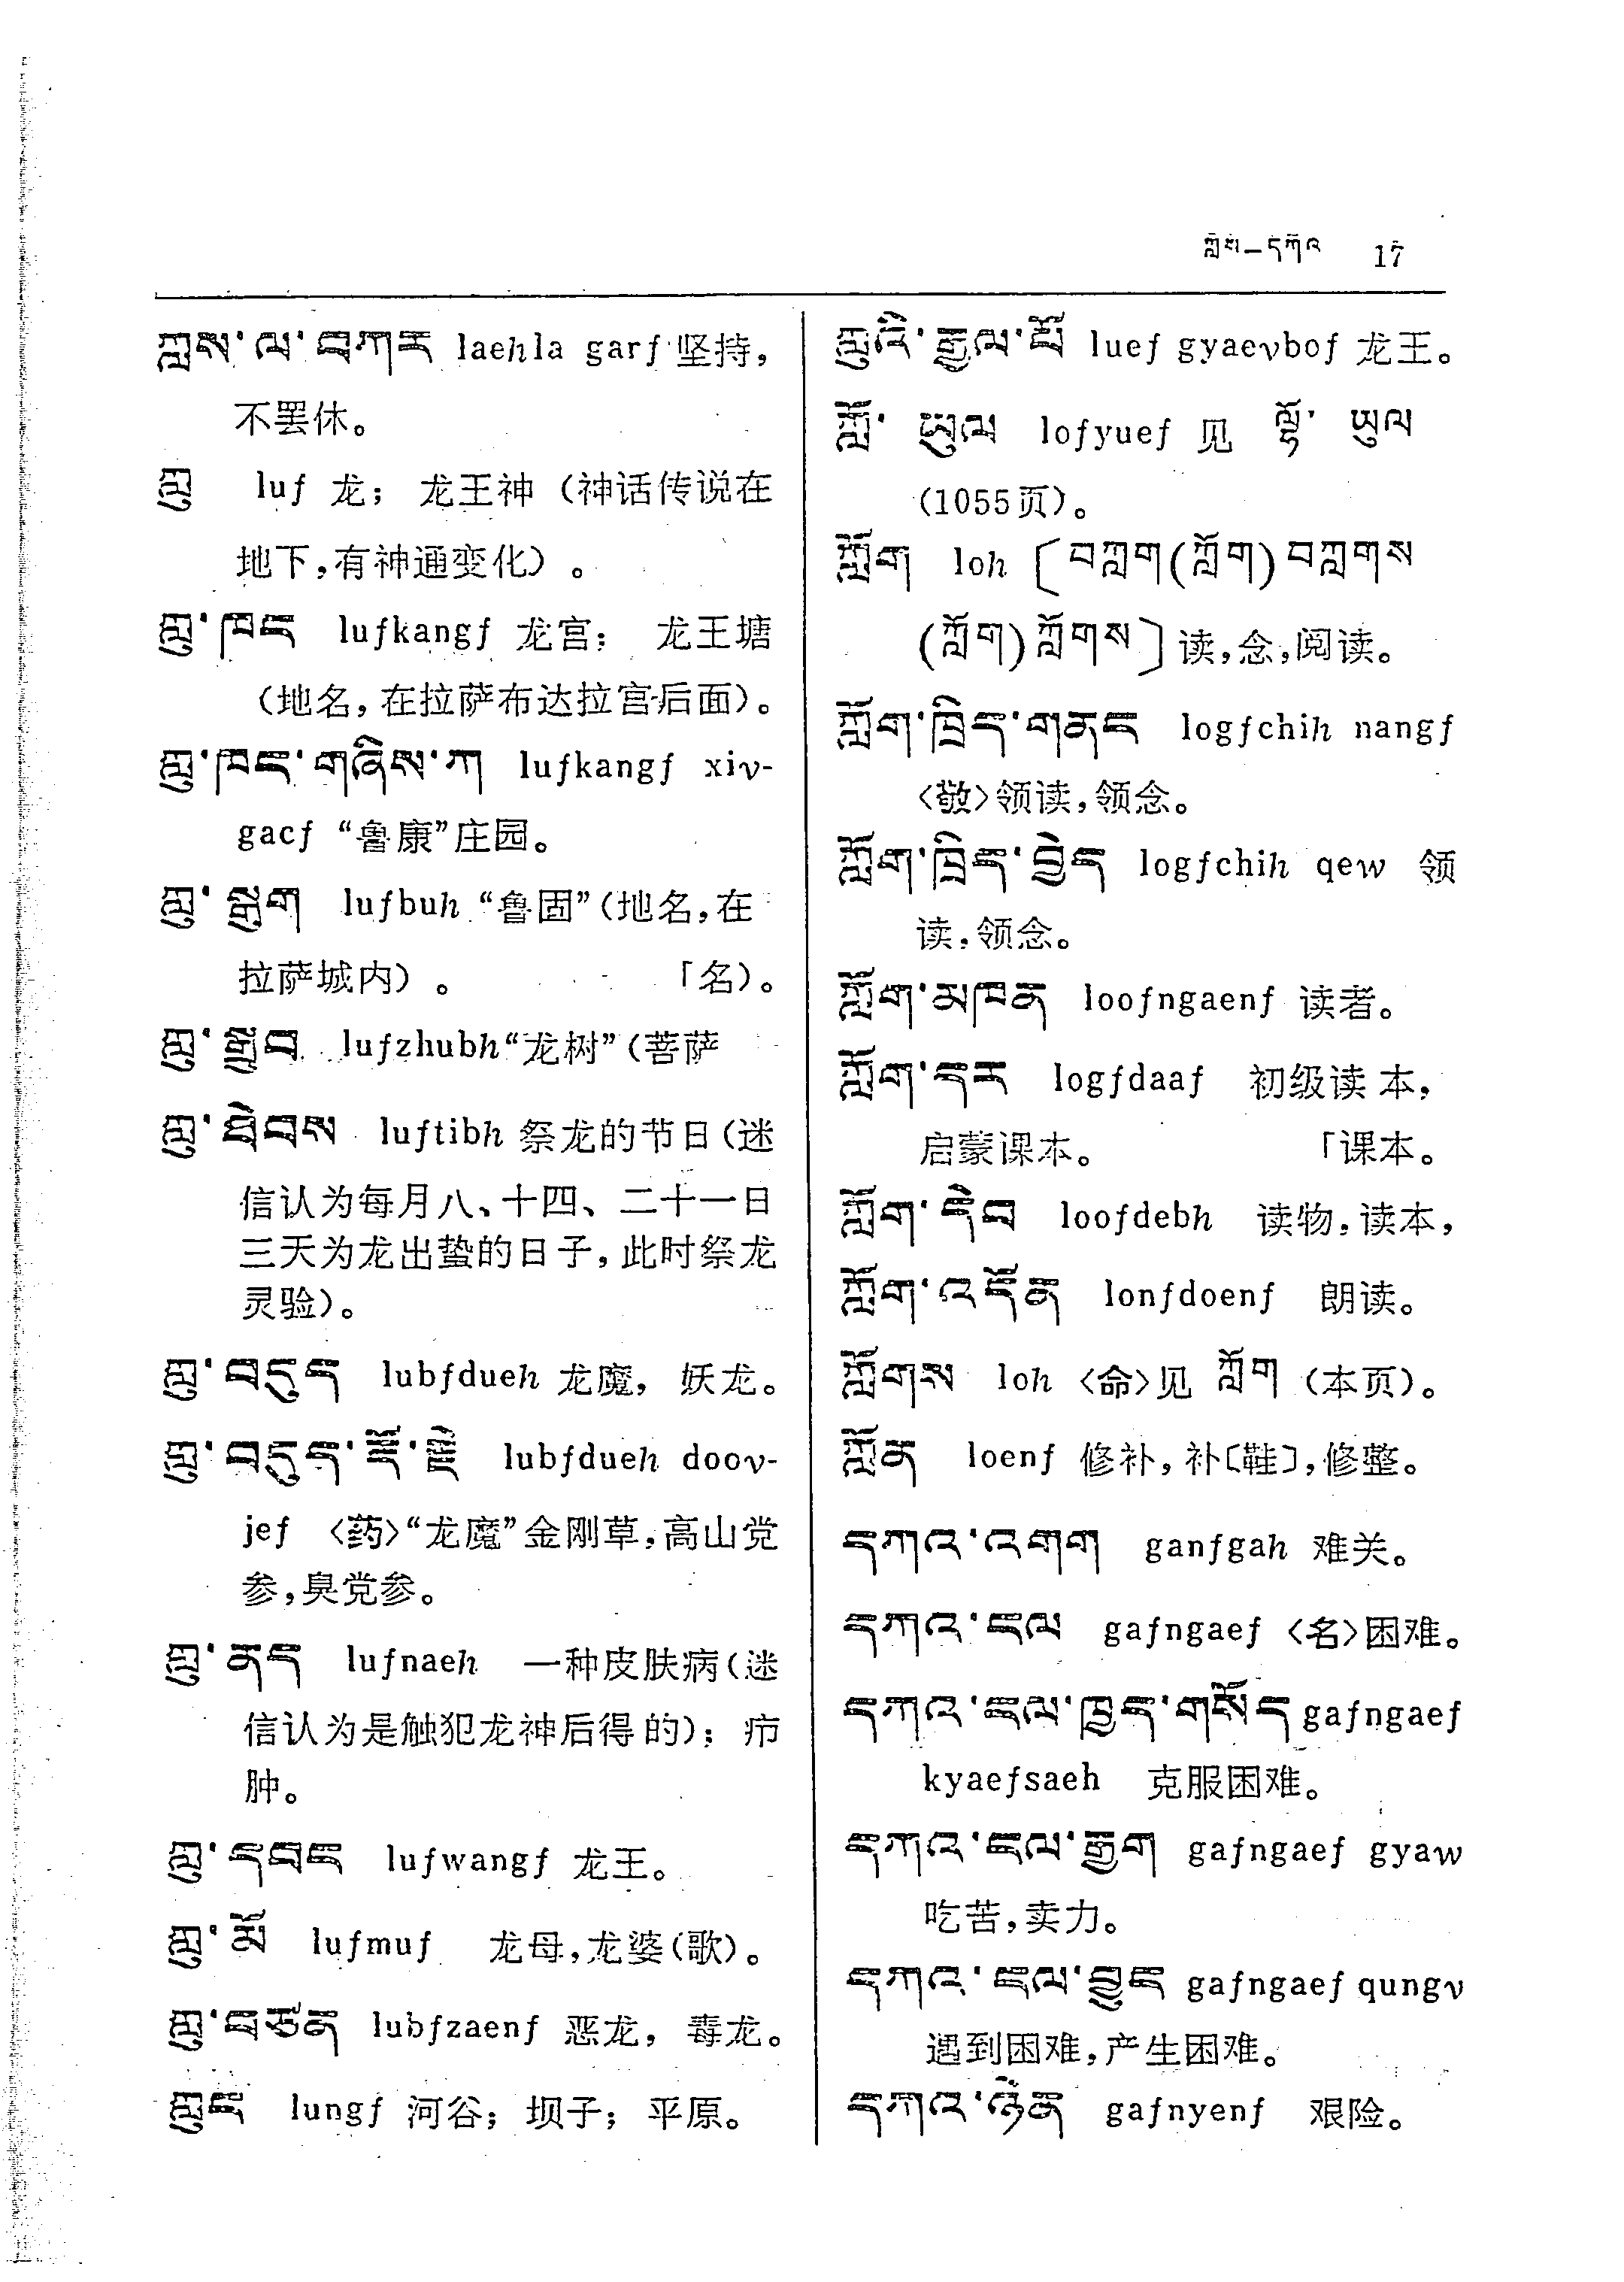 ཀློག—དཀའ 17
ཀླས་ལ་བཀར laehla garf 坚持,
不罢休。
ཀླུ luf 龙; 龙王神(神话传说在
地下,有神通变化)。
ཀླུ་ཁང lufkangf 龙宫; 龙王塘
(地名,在拉萨布达拉宫后面)。
ཀླུ་ཁང་གཞིས་ཀ lufkangf xiv-
gacf “鲁康”庄园。
ཀླུ་སྦུག lufbuh “鲁固”(地名,在
拉萨城内)。 「名)。
ཀླུ་སྒྲུབ lufzhubh“龙树”(菩萨
ཀླུ་ཐེབས luftibh 祭龙的节日(迷
信认为每月八、十四、二十一日
三天为龙出蛰的日子,此时祭龙
灵验)。
ཀླུ་བདུད lubfdueh 龙魔, 妖龙。
ཀླུ་བདུད་རྡོ་རྗེ lubfdueh doov-
jef 〈药〉“龙魔”金刚草,高山党
参,臭党参。
ཀླུ་ནད lufnaeh 一种皮肤病(迷
信认为是触犯龙神后得的); 疖
肿。
ཀླུ་དབང lufwangf 龙王。
ཀླུ་མོ lufmuf 龙母,龙婆(歌)。
ཀླུ་བཙན lubfzaenf 恶龙, 毒龙。
ཀླུང lungf 河谷; 坝子; 平原。
ཀླུའི་རྒྱལ་པོ luef gyaevbof 龙王。
ཀློ་ ཡུལ lofyuef 见 ལྷོ་ ཡུལ
(1055页)。
ཀློག loh 〔བཀླག(ཀློག)བཀླགས
(ཀློག)ཀློགས〕读,念,阅读。
ཀློག་ཁྲིད་གནང logfchih nangf
〈敬〉领读,领念。
ཀློག་ཁྲིད་བྱེད logfchih qew 领
读,领念。
ཀློག་མཁན loofngaenf 读者。
ཀློག་དར logfdaaf 初级读本,
启蒙课本。 「课本。
ཀློག་དེབ loofdebh 读物,读本,
ཀློག་འདོན lonfdoenf 朗读。
ཀློགས loh 〈命〉见 ཀློག (本页)。
ཀློན loenf 修补,补〔鞋〕,修整。
དཀའ་འགག ganfgah 难关。
དཀའ་ངལ gafngaef 〈名〉困难。
དཀའ་ངལ་ཁྱད་གསོད gafngaef
kyaefsaeh 克服困难。
དཀའ་ངལ་རྒྱག gafngaef gyaw
吃苦,卖力。
དཀའ་ངལ་བྱུང gafngaef qungv
遇到困难,产生困难。
དཀའ་ཉེན gafnyenf 艰险。